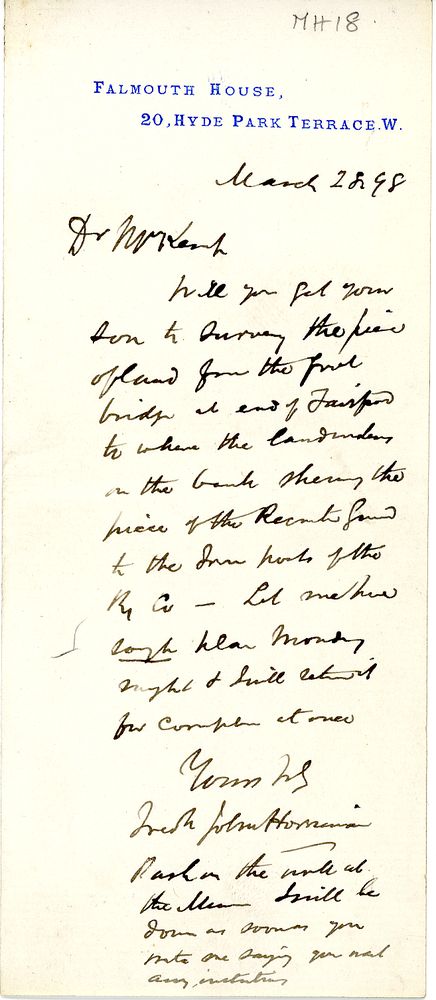 MH18
FALMOUTH HOUSE,
20, HYDE PARK TERRACE. W.
March 28 98
Dr Mr Kemp
Will you get your
son to survey the piece
of land from the foot
bridge at end of
to where the
on the bank showing the
piece of the Recreation Ground
to the Iron posts of the
Ry Co — Let me have
rough plan Monday
night & I will return it
for completion at once
Yours
Fredk John Horniman
Push on the work at
the Museum I will be
down as soon as you
write me saying you want
any instructions